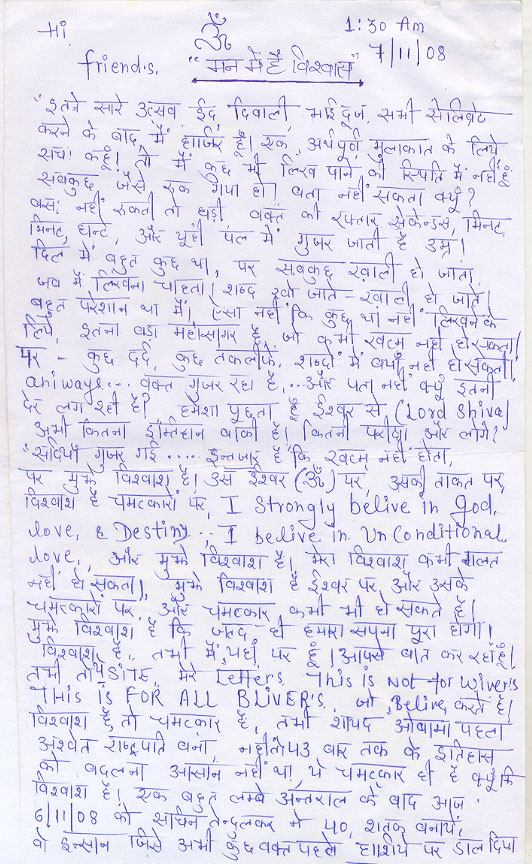 Hi 1:30 Am
ॐ 7/11/08
friends. "मन में है विश्वास"
"इतने सारे उत्सव ईद दिवाली भाईदूज, सभी सेलिब्रेट
करने के बाद, मैं हाजिर हूँ। एक, अर्थपूर्ण मुलाकात के लिये
सच कहूँ! तो मैं कुछ भी लिख पाने की स्थिति में नहीं हूँ
सबकुछ जैसे रुक गया हो। बता नहीं सकता क्यूँ?
बस: नहीं रुकती तो घड़ी वक्त की रफ्तार सेकेन्डस, मिनट,
मिनट, घन्टे, और यूहीं पल में गुजर जाती है उम्र।
दिल में बहुत कुछ था, पर सबकुछ खाली हो जाता,
जब मैं लिखना चाहता। शब्द खो जाते - खाली हो जाते।
बहुत परेशान था मैं। ऐसा नहीं कि कुछ था नहीं लिखने के
लिये, इतना बड़ा महासागर है, जो कभी खत्म नहीं हो सकता।
पर - कुछ दर्द, कुछ तकलीफें, शब्दों में बयाँ नहीं हो सकती।
aniways... वक्त गुजर रहा है... और पता नहीं क्यूँ इतनी
देर लग रही है? हमेशा पूछता हूँ ईश्वर से, (Lord Shiva)
अभी कितना इम्तिहान बाकी है। कितनी परीक्षा और लोगे?
"सदियाँ गुजर गई..... इन्तजार है कि खत्म नहीं होता,
पर मुझे विश्वाश है। उस ईश्वर (ॐ) पर, उसकी ताकत पर,
विश्वाश है चमत्कारों पर, I strongly belive in God,
love, & Destiny... I belive in Unconditional
love, और मुझे विश्वाश है। मेरा विश्वाश कभी गलत
नहीं हो सकता।, मुझे विश्वाश है ईश्वर पर और उसके
चमत्कारों पर, और चमत्कार कभी भी हो सकते हैं।
मुझे विश्वाश है कि जल्द ही हमारा सपना पूरा होगा।
विश्वाश है, तभी मैं यहाँ पर हूँ। आपसे बात कर रहा हूँ।
तभी तो SITE, मेरे Letters This is Not for Wiver's
This is FOR ALL BLIVER'S जो Belive करते हैं।
विश्वाश है, तो चमत्कार है, तभी शायद ओबामा पहला
अश्वेत राष्ट्रपति बना, नहीं तो 43 बार तक के इतिहास
को बदलना आसान नहीं था, ये चमत्कार ही है क्यूँकि
विश्वाश है। एक बहुत लम्बे अन्तराल के बाद आज
6/11/08 को सचिन तेन्दुलकर ने 40, शतक बनाये,
वो इन्सान जिसे अभी कुछ वक्त पहले हाशिये पर डाल दिया